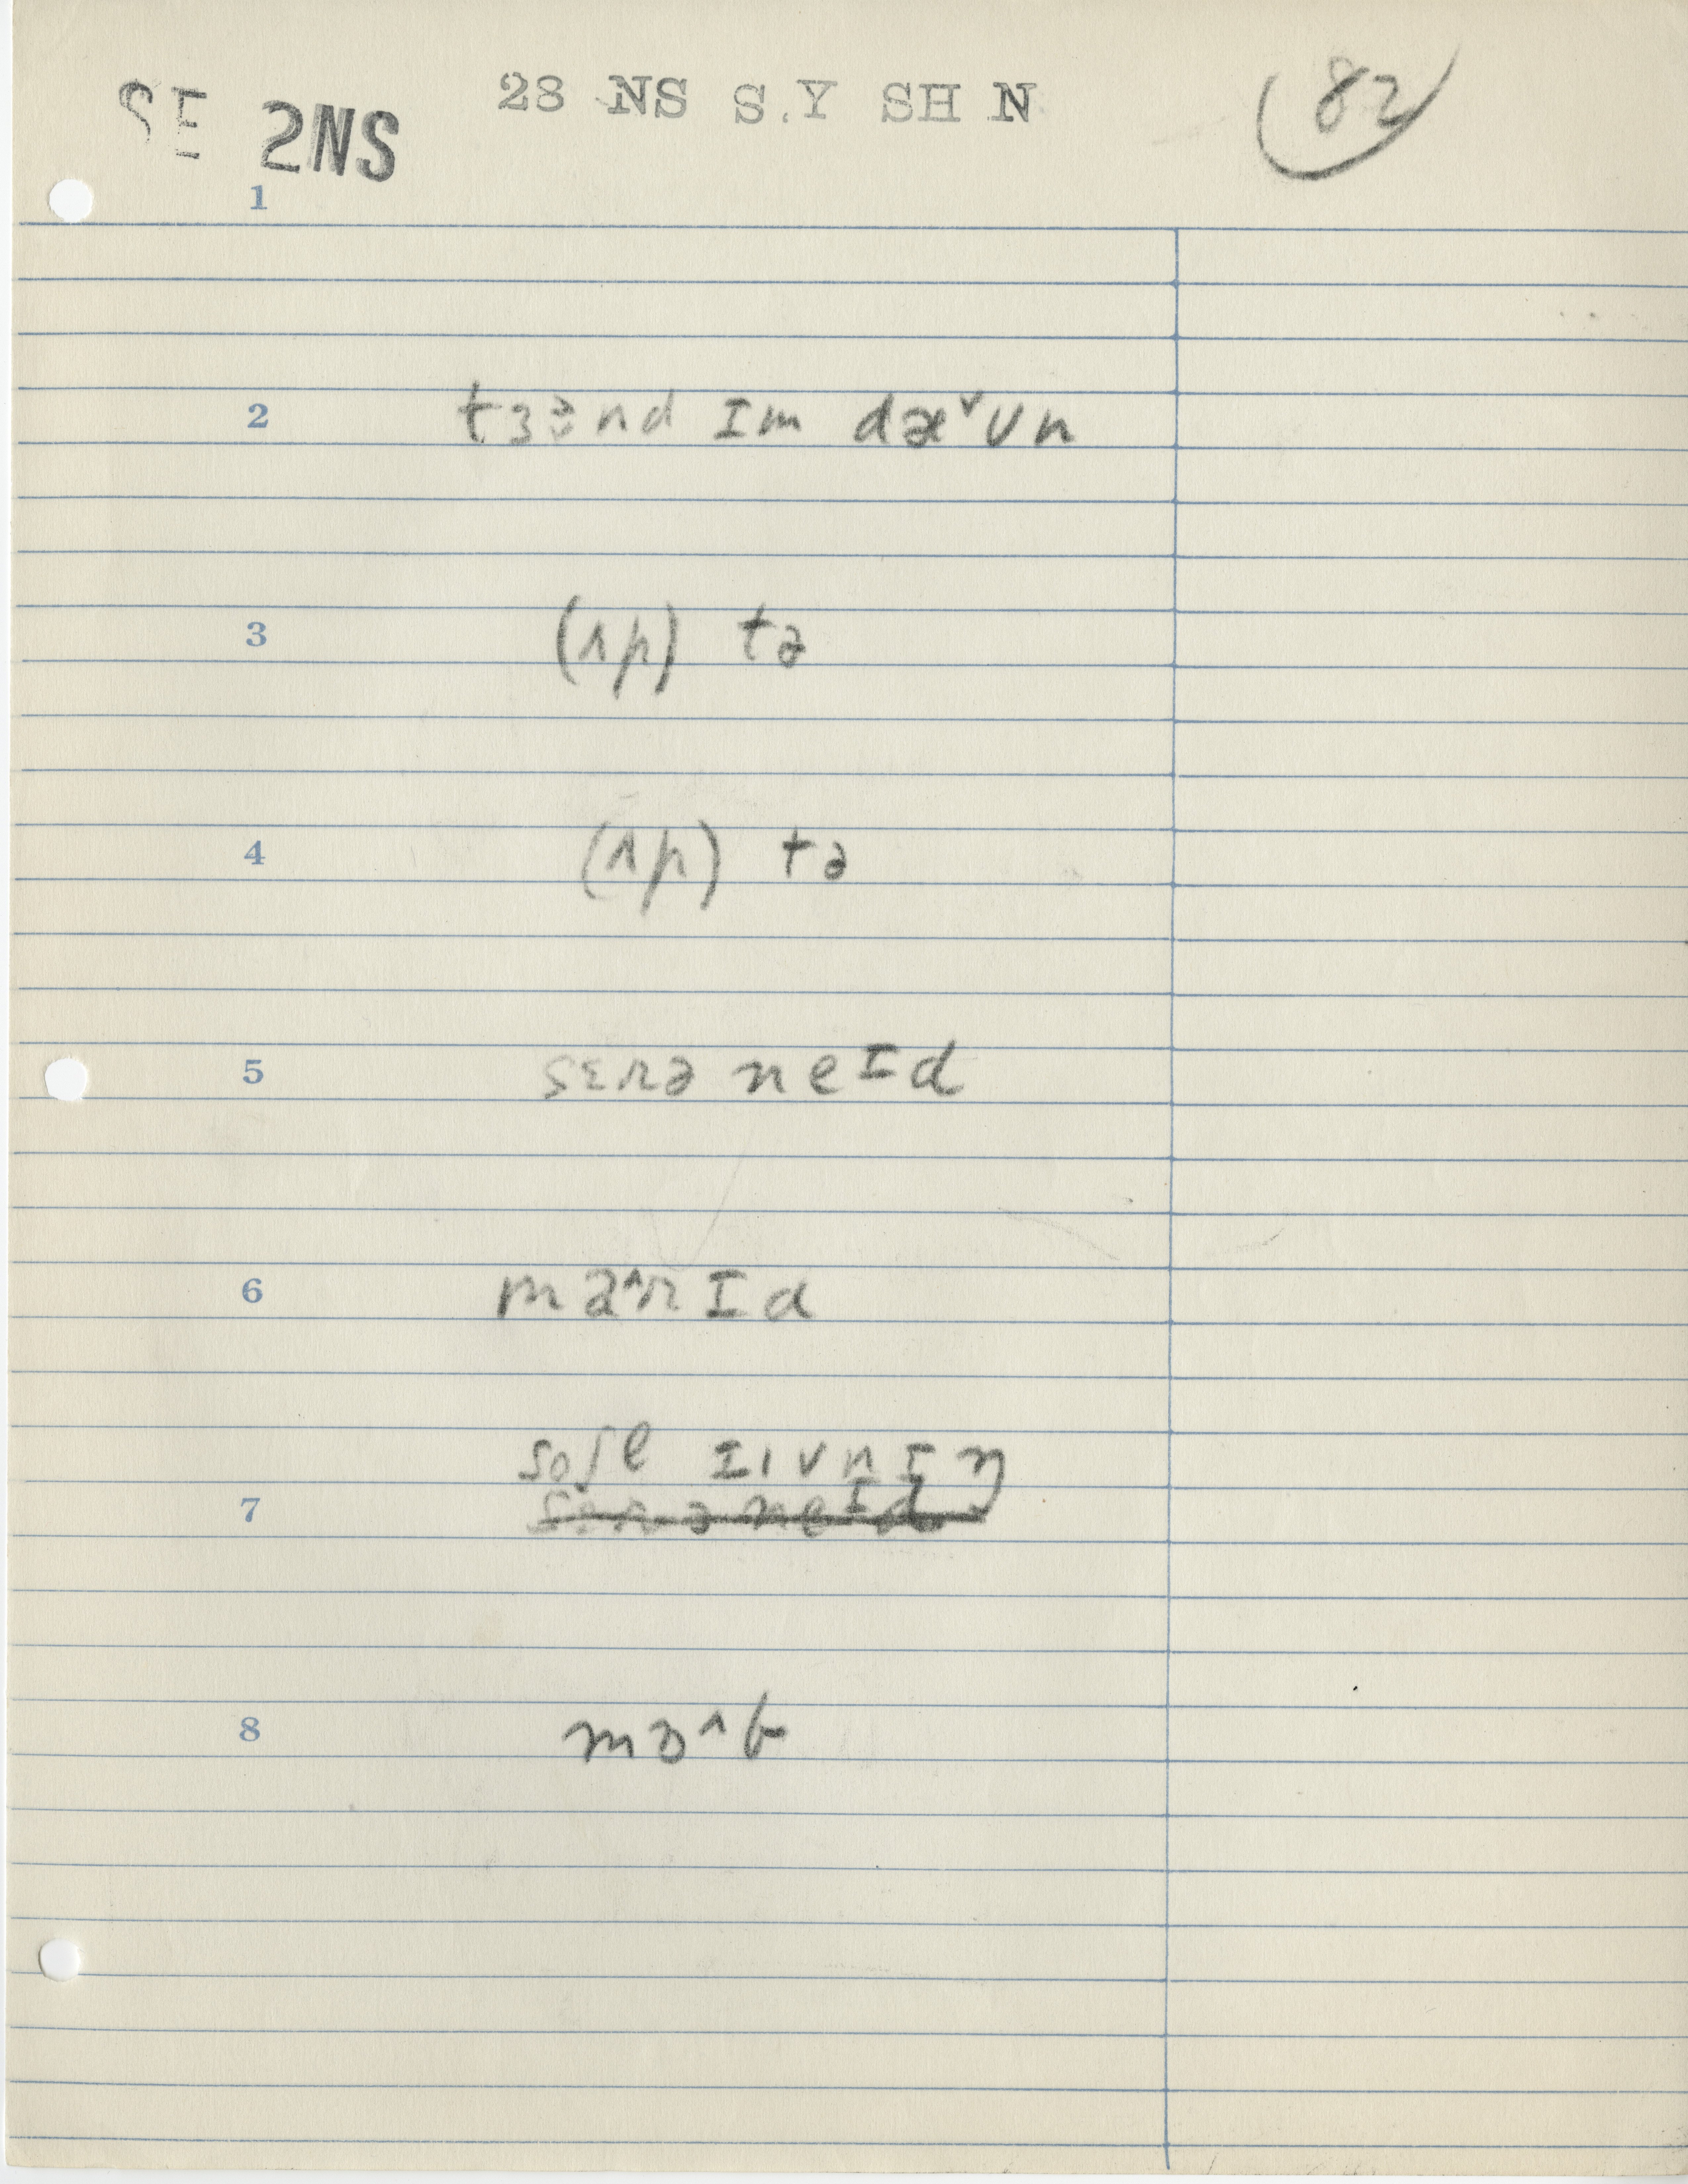 SE 2NS 28 NS S.Y SH N 82
1
2 tɜɚnd Im dæ˅ʊn
3 (ʌp) tə
4 (ʌp) tə
5 sɛrə neId
6 mæ^rId
soʃl Iv nIŋ
7 sɛrə neId
8 mɔ^t